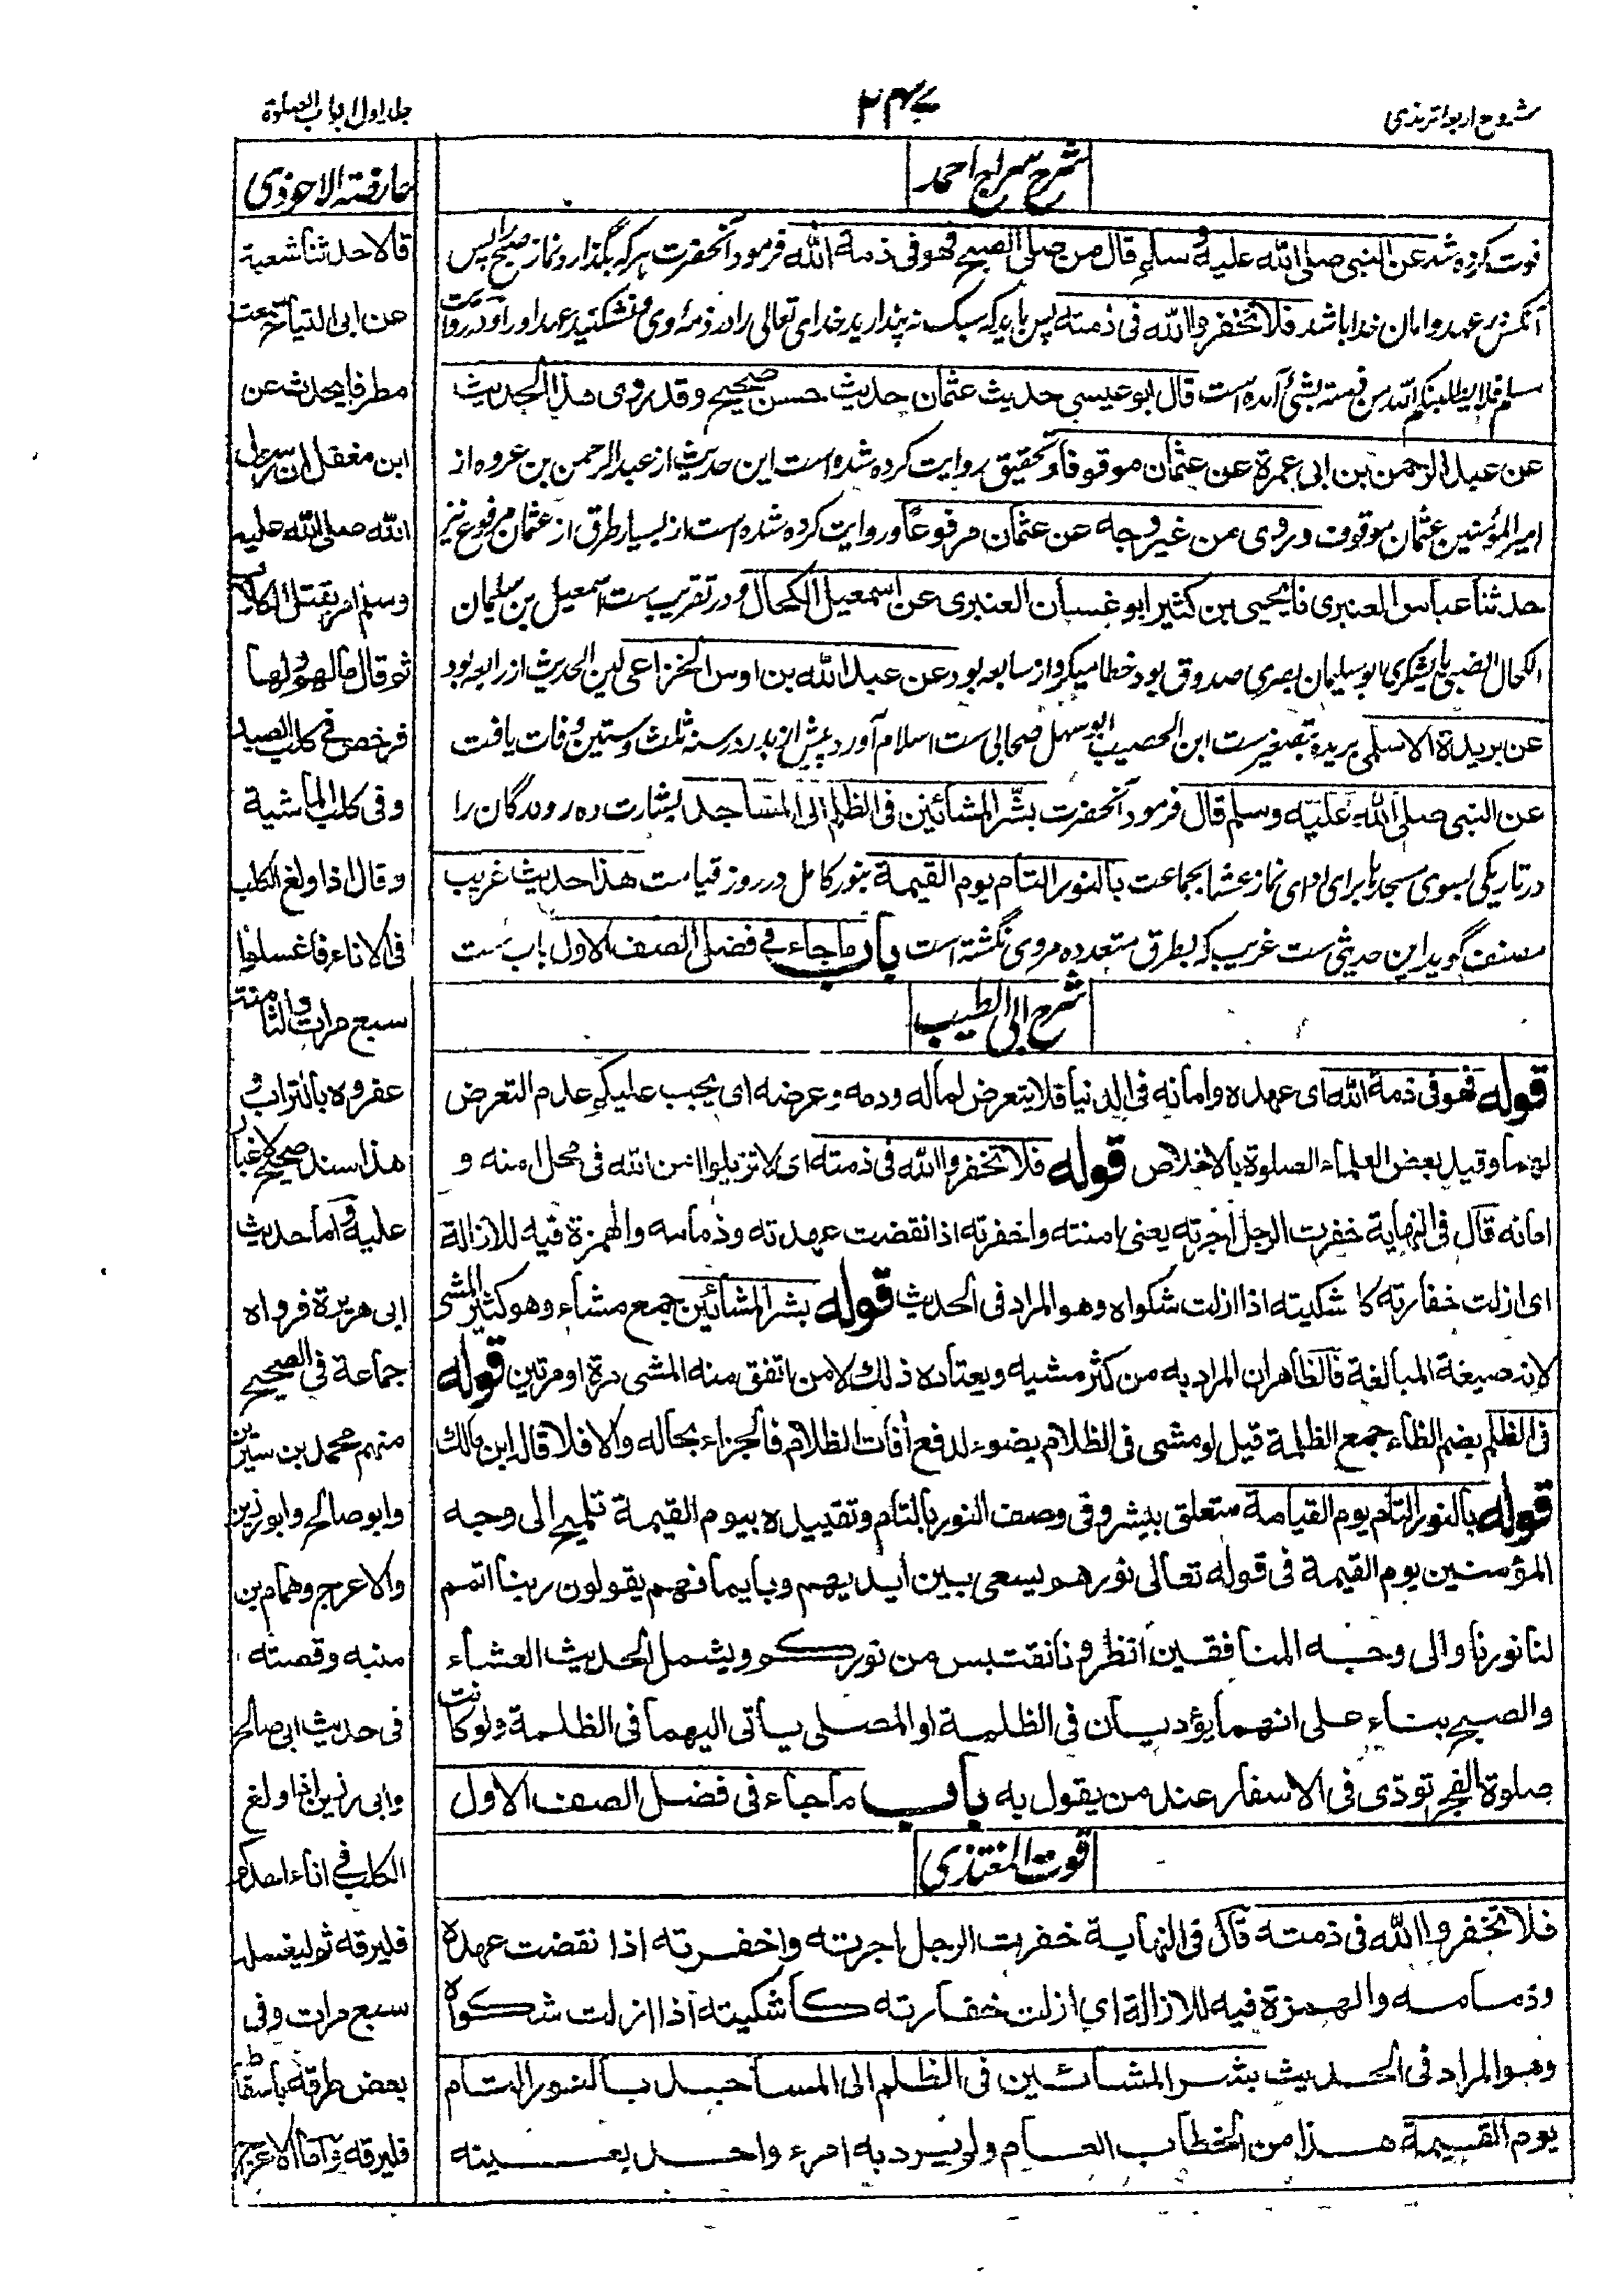 شروح اربعه ترمذی
۲۴۷
جلد اول ابواب الصلوة
شرح سراج احمد
فوت کرده شد عن النبی صلی الله علیه وسلم قال من صلی الصبح فهو فی ذمة الله فرمود آنحضرت هرکه بگذارد نماز صبح را پس
آنکس در عهد و امان خدا باشد فلا تخفروا الله فی ذمته پس باید که سبک نه پندارید خدای تعالی را در ذمهٔ وی و نشکنید عهد او را و در روایت
مسلم فلا یطلبنکم الله من ذمته بشئ آمده است قال ابو عیسی حدیث عثمان حدیث حسن صحیح وقد روی هذا الحدیث
عن عبد الرحمن بن ابی عمرة عن عثمان موقوفا و تحقیق روایت کرده شده است این حدیث از عبد الرحمن بن عروه از
امیر المؤمنین عثمان موقوف و روی من غیر وجه عن عثمان مرفوعاً و روایت کرده شده است از بسیار طرق از عثمان مرفوع نیز
حدثنا عباس العنبری نا یحیی بن کثیر ابو غسان العنبری عن اسمعیل الکحال و در تقریب ست اسمعیل بن سلیمان
الکحال الضبی یا یشکری ابو سلیمان بصری صدوق بود خطا میکرد از سابعه بود عن عبد الله بن اوس الخزاعی لین الحدیث از رابعه بود
عن بریدة الاسلمی بریده بتصغیر ست ابن الحصیب ابو سهل صحابی ست اسلام آورد پیش از بدر در سنه ثلث وستین وفات یافت
عن النبی صلی الله علیه وسلم قال فرمود آنحضرت بشّر المشائین فی الظلم الی المساجد بشارت ده روندگان را
در تاریکی بسوی مسجدها برای ادای نماز عشا بجماعت بالنور التام یوم القیمة بنور کامل در روز قیامت هذا حدیث غریب
مصنف گوید این حدیثی ست غریب که بطرق متعدده مروی نگشته است باب ما جاء فی فضل الصف الاول باب ست
شرح ابی الطیب
قوله فهو فی ذمة الله ای عهده وامانه فی الدنیا فلا یتعرض لماله ودمه وعرضه ای یجب علیکم عدم التعرض
لهما وقیل بعض العلماء الصلوة بالاخلاص قوله فلا تخفروا الله فی ذمته ای لا تزیلوا امن الله فی محل امنه و
امانه قال فی النهایة خفرت الرجل اجرته یعنی امنته واخفرته اذا نقضت عهدته وذمامه والهمزة فیه للازالة
ای ازلت خفارته کا شکیته اذا ازلت شکواه وهو المراد فی الحدیث قوله بشر المشائین جمع مشاء وهو کثیر المشی
لانه صیغة المبالغة فالظاهر ان المراد به من کثر مشیه ویعتاده ذلك لا من اتفق منه المشی مرة او مرتین قوله
فی الظلم بضم الظاء جمع الظلمة قیل لو مشی فی الظلام بضوء لدفع أفات الظلام فالجزاء بحاله والا فلا قاله ابن مالك
قوله بالنور التام یوم القیامة متعلق ببشر وفی وصف النور بالتام وتقییده بیوم القیمة تلمیح الی وجه
المؤمنین یوم القیمة فی قوله تعالی نورهم یسعی بین ایدیهم وبایمانهم یقولون ربنا اتمم
لنا نورنا والی وجه المنافقین انظرونا نقتبس من نورکم ویشمل الحدیث العشاء
والصبح بناء علی انهما یؤدیان فی الظلمة او المصلی یأتی الیهما فی الظلمة ولو کانت
صلوة الفجر تؤدی فی الاسفار عند من یقول به باب ما جاء فی فضل الصف الاول
قوت المغتذی
فلا تخفروا الله فی ذمته قال فی النهایة خفرت الرجل اجرته واخفرته اذا نقضت عهده
وذمامه والهمزة فیه للازالة ای ازلت خفارته کأشکیته اذا ازلت شکواه
وهو المراد فی الحدیث بشر المشائین فی الظلم الی المساجد بالنور التام
یوم القیمة هذا من الخطاب العام ولم یرد به امرء واحد بعینه
عارضة الاحوذی
قالا حدثنا شعبة
عن ابی التیاح سمعت
مطرفا یحدث عن
ابن مغفل ان رسول
الله صلی الله علیه
وسلم امر بقتل الکلاب
ثم قال ما لهم ولها
فرخص فی کلب الصید
وفی کلب الماشیة
وقال اذا ولغ الکلب
فی الاناء فاغسلوا
سبع مرات والثامنة
عفروه بالتراب و
هذا سند صحیح لا غبار
علیه واما حدیث
ابی هریرة فرواه
جماعة فی الصحیح
منهم محمد بن سیرین
وابو صالح وابو رزین
والاعرج وهمام بن
منبه وقصته
فی حدیث ابی صالح
وابی رزین اذا ولغ
الکلب فی اناء احدکم
فلیرقه ثم لیغسله
سبع مرات وفی
بعض طرقه باسقاط
فلیرقه واما الاعرج